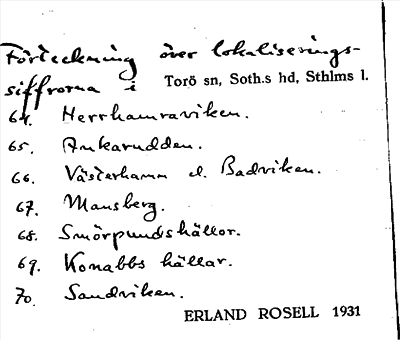 Förteckning över lokaliserings-
siffrorna i Torö sn, Soth.s hd, Sthlms l.
64. Herrhamraviken.
65. Ankarudden.
66. Västerhamn el. Badviken.
67. Mansberg.
68. Smörpundshällor.
69. Konabbs hällar.
70. Sandviken.
ERLAND ROSELL 1931